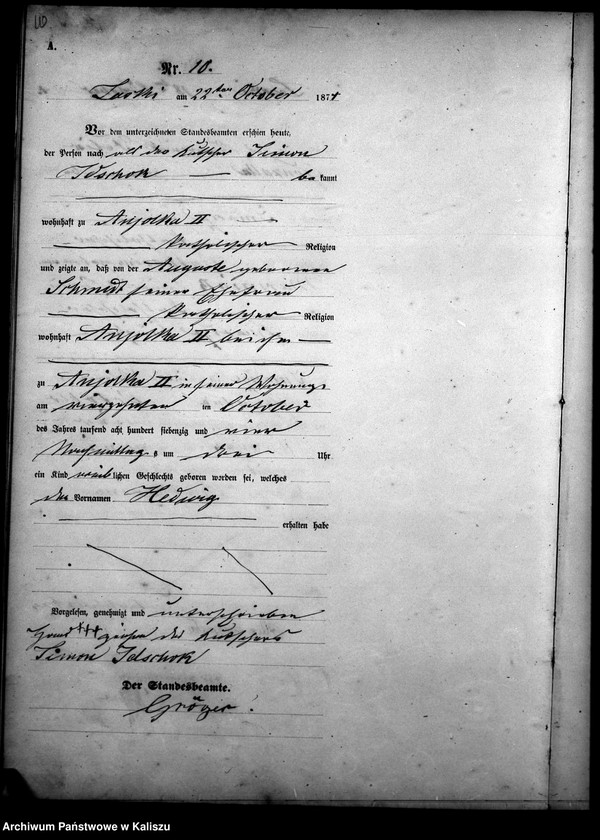 10
A.
Nr. 10.
am 22ten October 1874
Vor dem unterzeichneten Standesbeamten erschien heute,
der Person nach als der Kutscher Simon
Idschok — be kannt
wohnhaft zu Anjolka II
katholischer Religion
und zeigte an, daß von der Auguste geborenen
Schmidt seiner Ehefrau
katholischer Religion
wohnhaft Anjolka II bei ihm
zu Anjolka II in seiner Wohnung
am vierzehnten ten October
des Jahres tausend acht hundert siebenzig und vier
Nachmittags um drei Uhr
ein Kind weiblichen Geschlechts geboren worden sei, welches
den Vornamen Hedwig
erhalten habe
Vorgelesen, genehmigt und unterschrieben
Hand +++ zeichen des Kutschers
Simon Idschok
Der Standesbeamte.
Gröger.
Archiwum Państwowe w Kaliszu